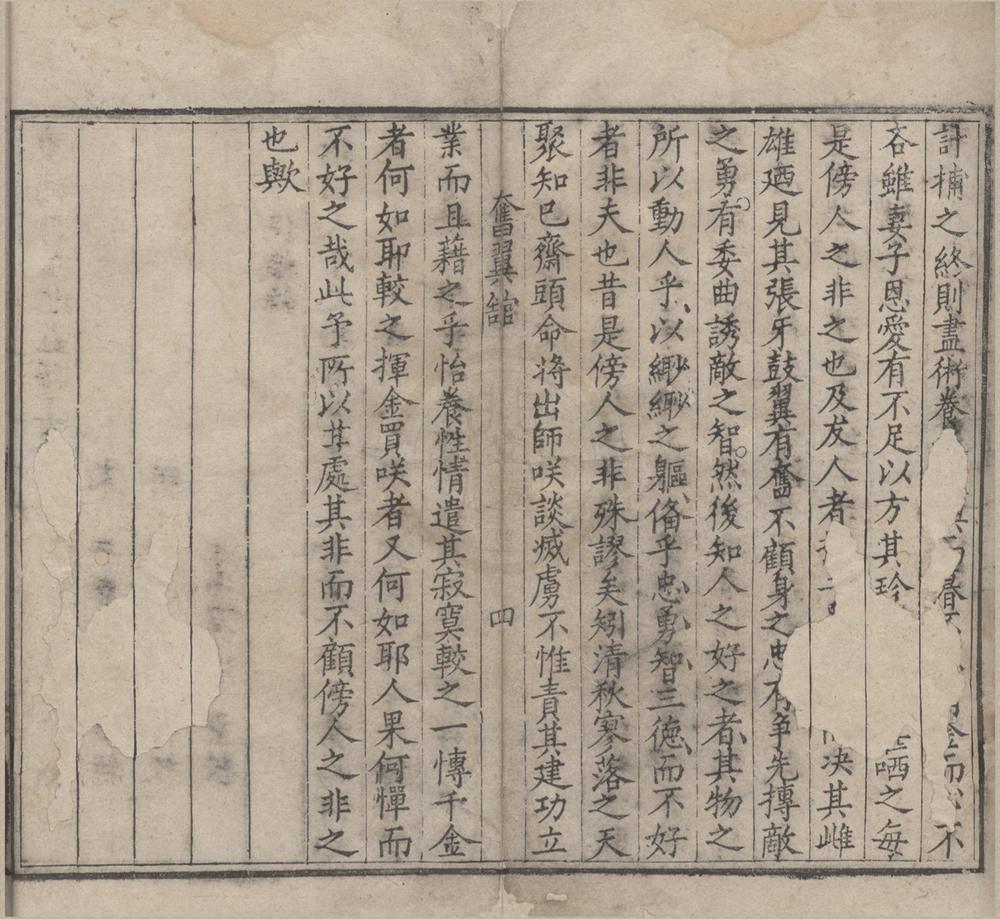 計捕之終則盡術卷春金而心不
吝雖妻子恩愛有不足以方其珍哂之每
是傍人之非之也及友人者决其雌
雄廼見其張牙鼓翼有奮不顧身之忠有爭先摶敵
之勇有委曲誘敵之智然後知人之好之者其物之
所以動人乎以緲緲之軀俻乎忠勇智三德而不好
者非夫也昔是傍人之非殊謬矣矧清秋寥落之天
聚知已齋頭命將出師咲談滅虜不惟責其建功立
奮翼舘 四
業而且藉之乎怡養性情遣其寂寞較之一慱千金
者何如耶較之揮金買咲者又何如耶人果何憚而
不好之哉此予所以甘處其非而不顧傍人之非之
也歟